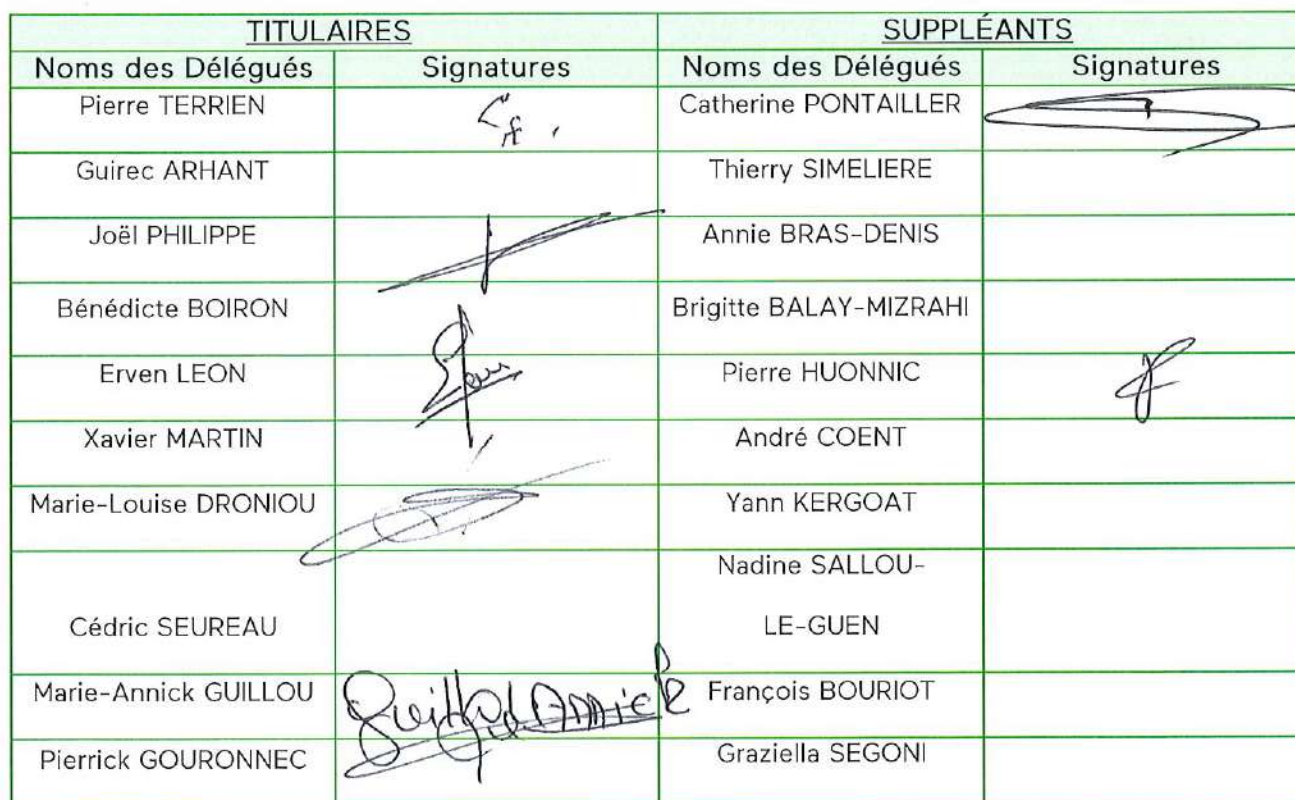 TITULAIRES SUPPLÉANTS
Noms des Délégués Signatures Noms des Délégués Signatures
Pierre TERRIEN Catherine PONTAILLER
Guirec ARHANT Thierry SIMELIERE
Joël PHILIPPE Annie BRAS-DENIS
Bénédicte BOIRON Brigitte BALAY-MIZRAHI
Erven LEON Pierre HUONNIC
Xavier MARTIN André COENT
Marie-Louise DRONIOU Yann KERGOAT
Nadine SALLOU-
Cédric SEUREAU LE-GUEN
Marie-Annick GUILLOU François BOURIOT
Pierrick GOURONNEC Graziella SEGONI